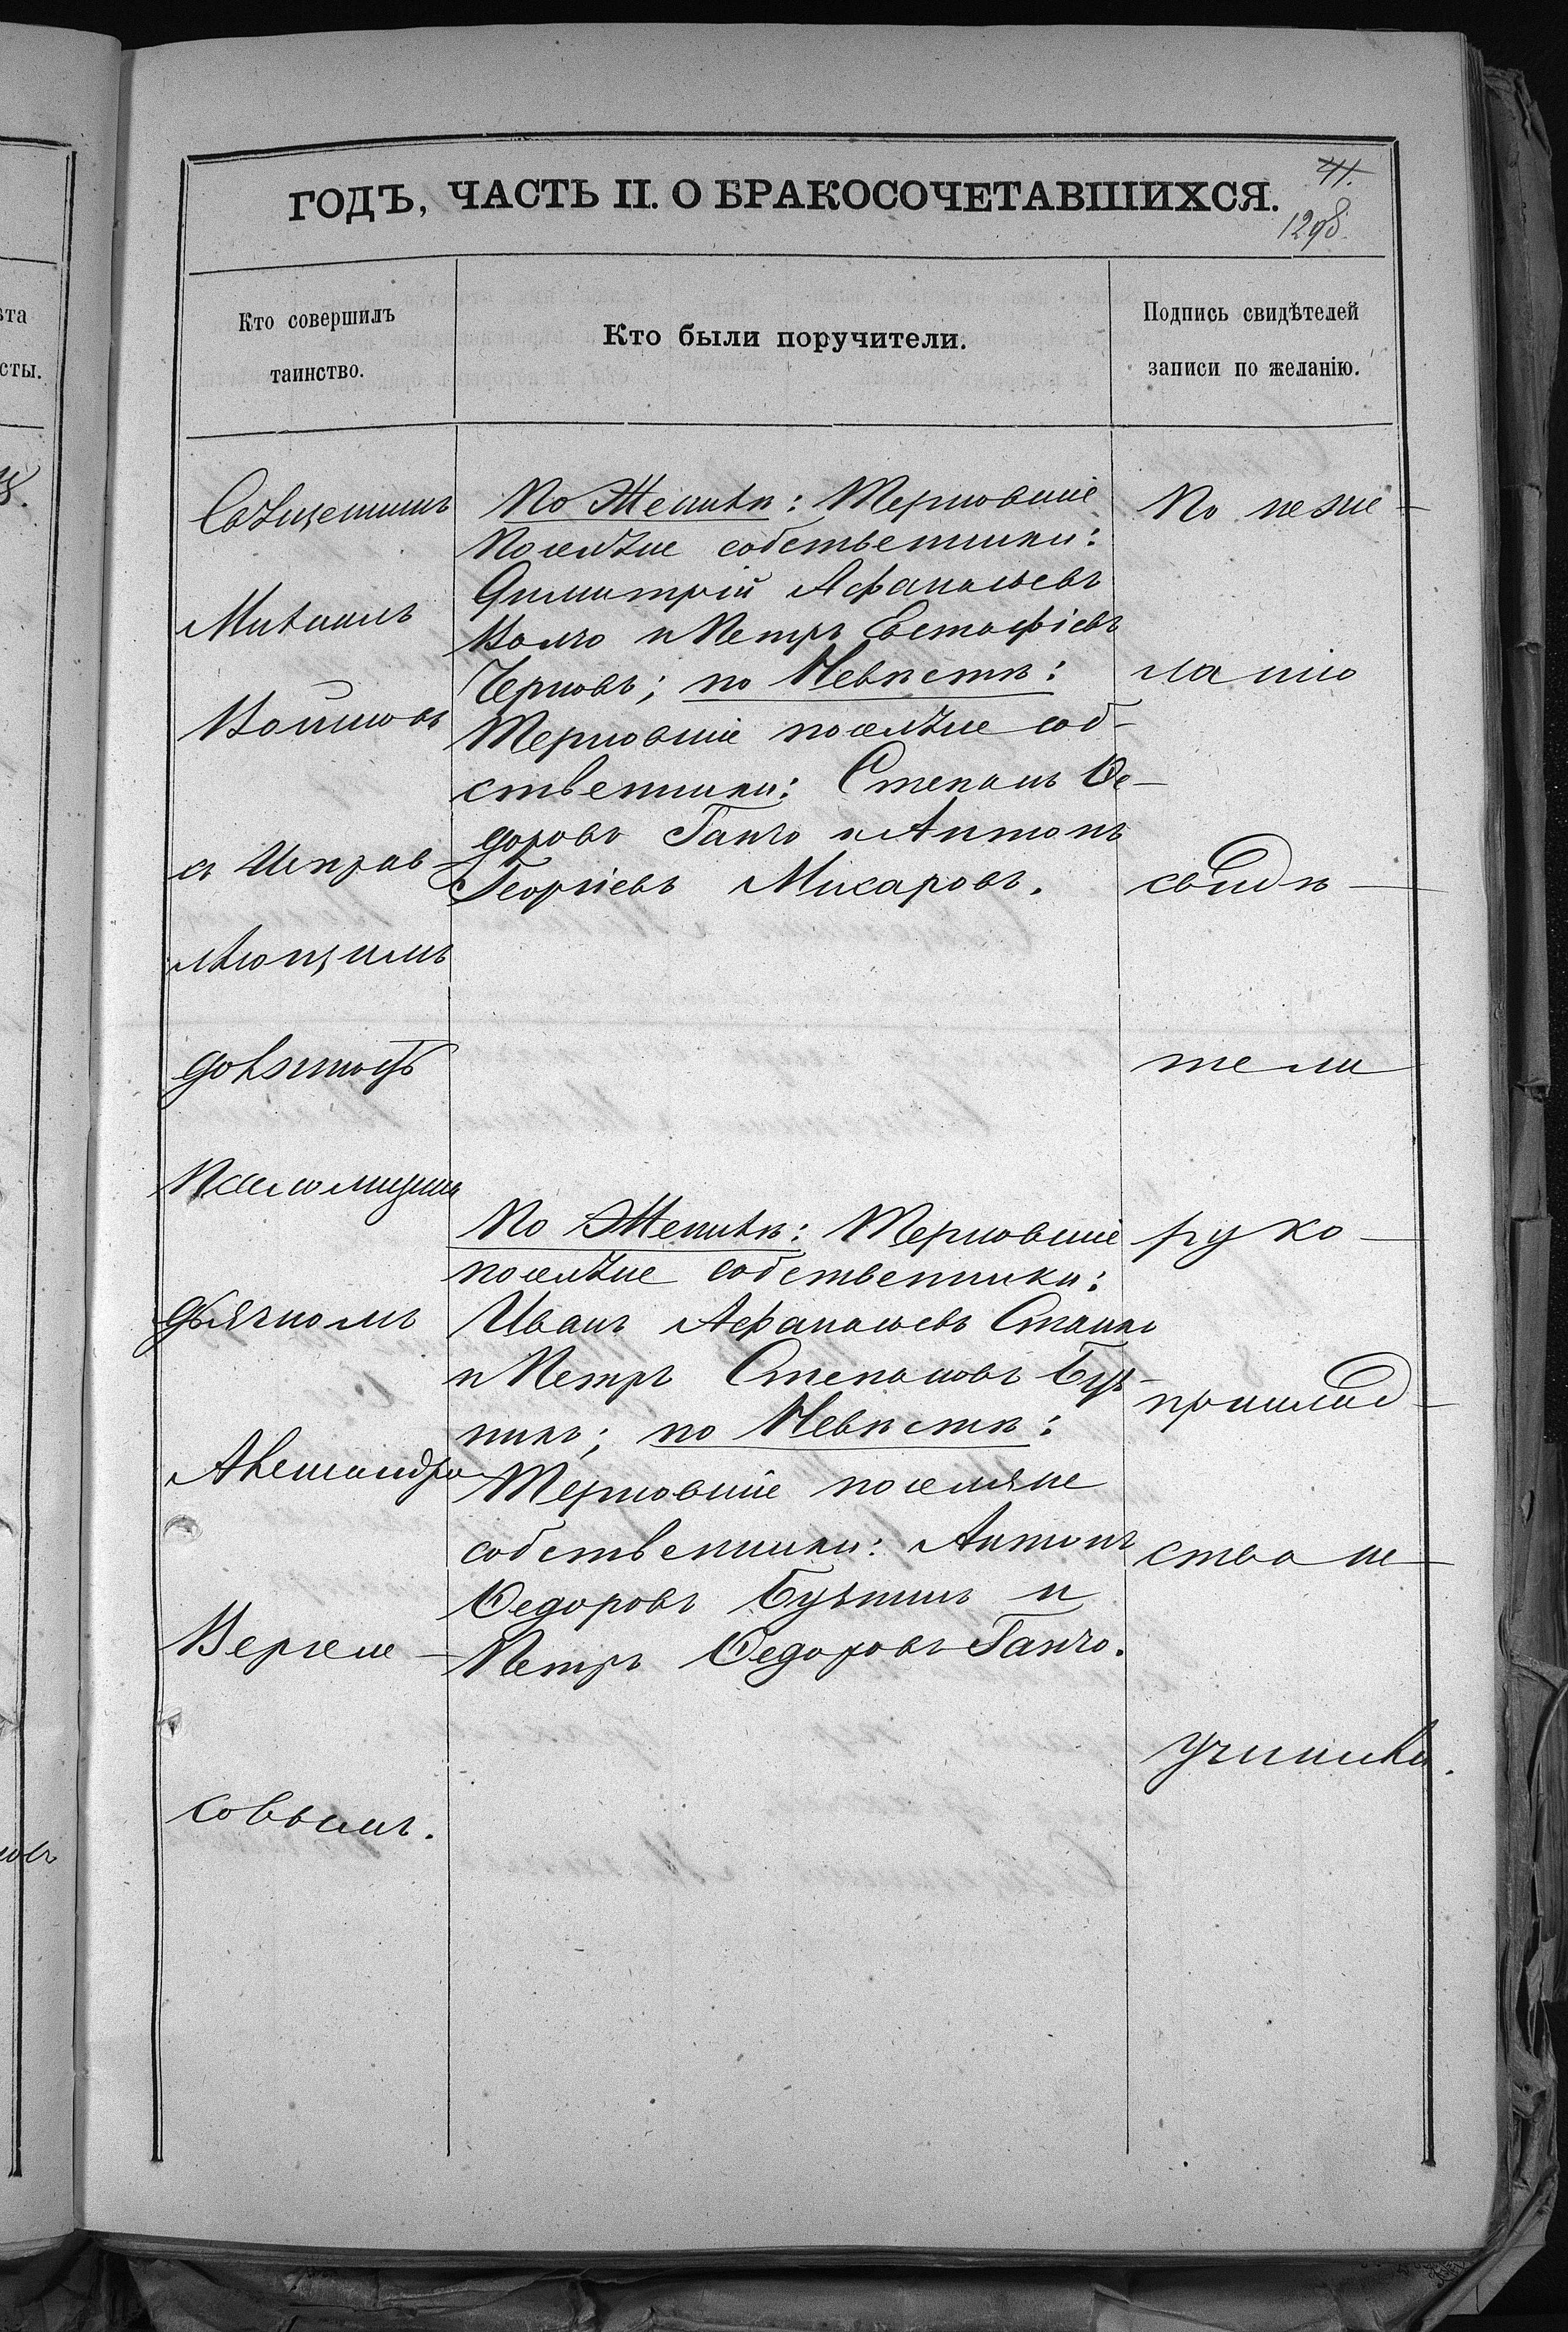 ГОДЪ, ЧАСТЬ II. О БРАКОСОЧЕТАВШИХСЯ.
41.
1298.
Кто совершилъ
таинство.
Кто были поручители.
Подпись свидѣтелей
записи по желанію.
Священникъ
Михаилъ
съ Исправ-
ляющимъ
должность
Псаломщика
дьячкомъ
Александромъ
совымъ.
По Женихѣ: Терновскіе
поселяне собственники:
Димитрій Афанасьевъ
Волчо и Петръ Евстафіевъ
Черновъ; по Невѣстѣ:
Терновскіе поселяне соб-
ственники: Степанъ Ѳе-
доровъ Ганчо и Антонъ
Георгіевъ Мисаровъ.
По Женихѣ: Терновскіе
поселяне собственники:
Иванъ Афанасьевъ Станко
и Петръ Степановъ
по Невѣстѣ:
Терновскіе поселяне
собственники: Антонъ
Ѳедоровъ и
Петръ Ѳедоровъ Ганчо.
По неже-
ланію
свидѣ-
тели
руко-
приклад-
ства не
учинили.
ѣта
сты.